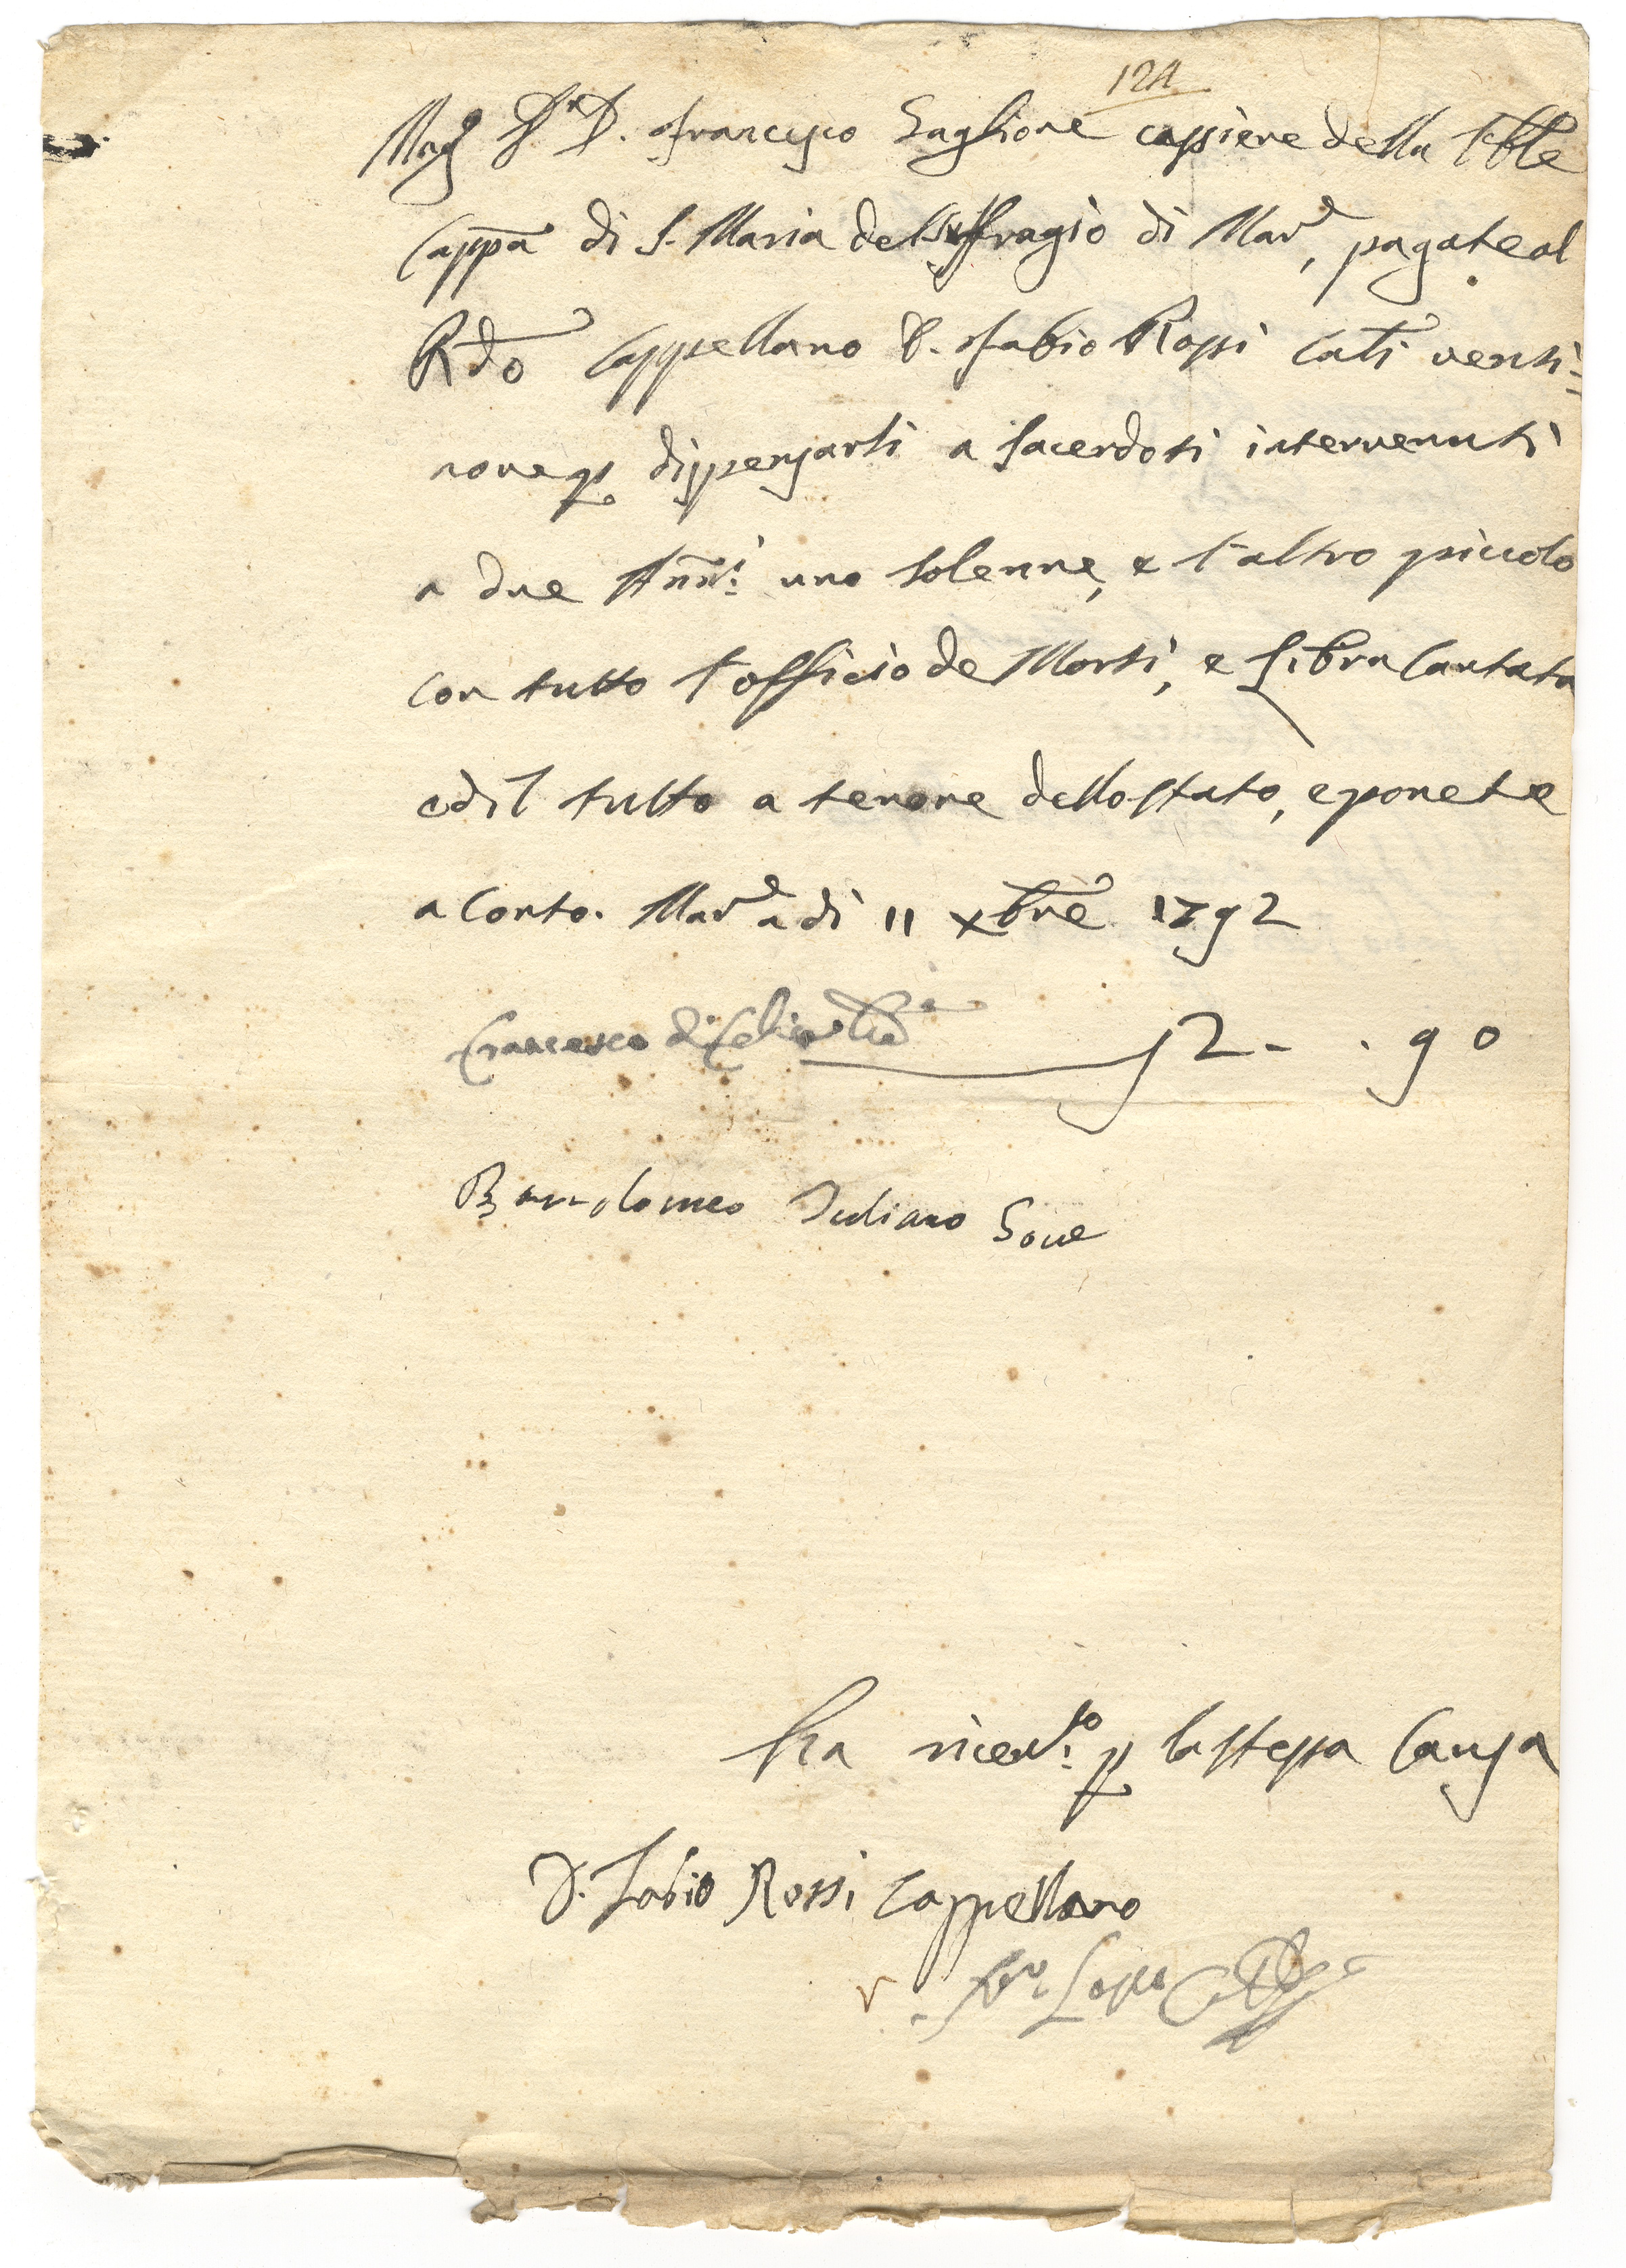 124
Mag.co Sr. D. Francesco Saglione cassiere della Ve͞ble
Capp͞a di S. Maria del Suffragio di Mar.e, pagate al
R͞do Cappellano D. Fabio Rossi Ca͞ti venti=
nove p dispenzarli a Sacerdoti intervenuti
a due An͞ni: uno solenne, e l'altro piccolo
con tutto l'officio de Morti, e Libra Cantata
ed il tutto a tenore dello stato, e ponete
a Conto. Mar.e a di 11 Xb͞re 1792
Francesco di
2 - . 90
Bartolomeo Iuliano Gove
ha ricev.to p la stessa Causa
D. Fabio Rossi Cappellano